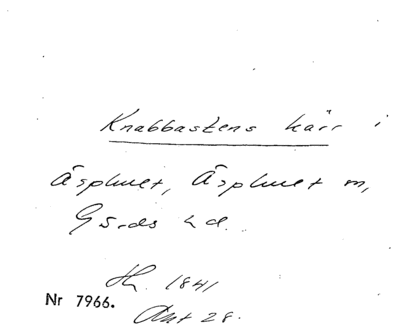 Knabbastens kärr i
Äsphult, Äsphult m,
Gärds hd.
Hh. 1841
Nr 7966.
Akt 28.